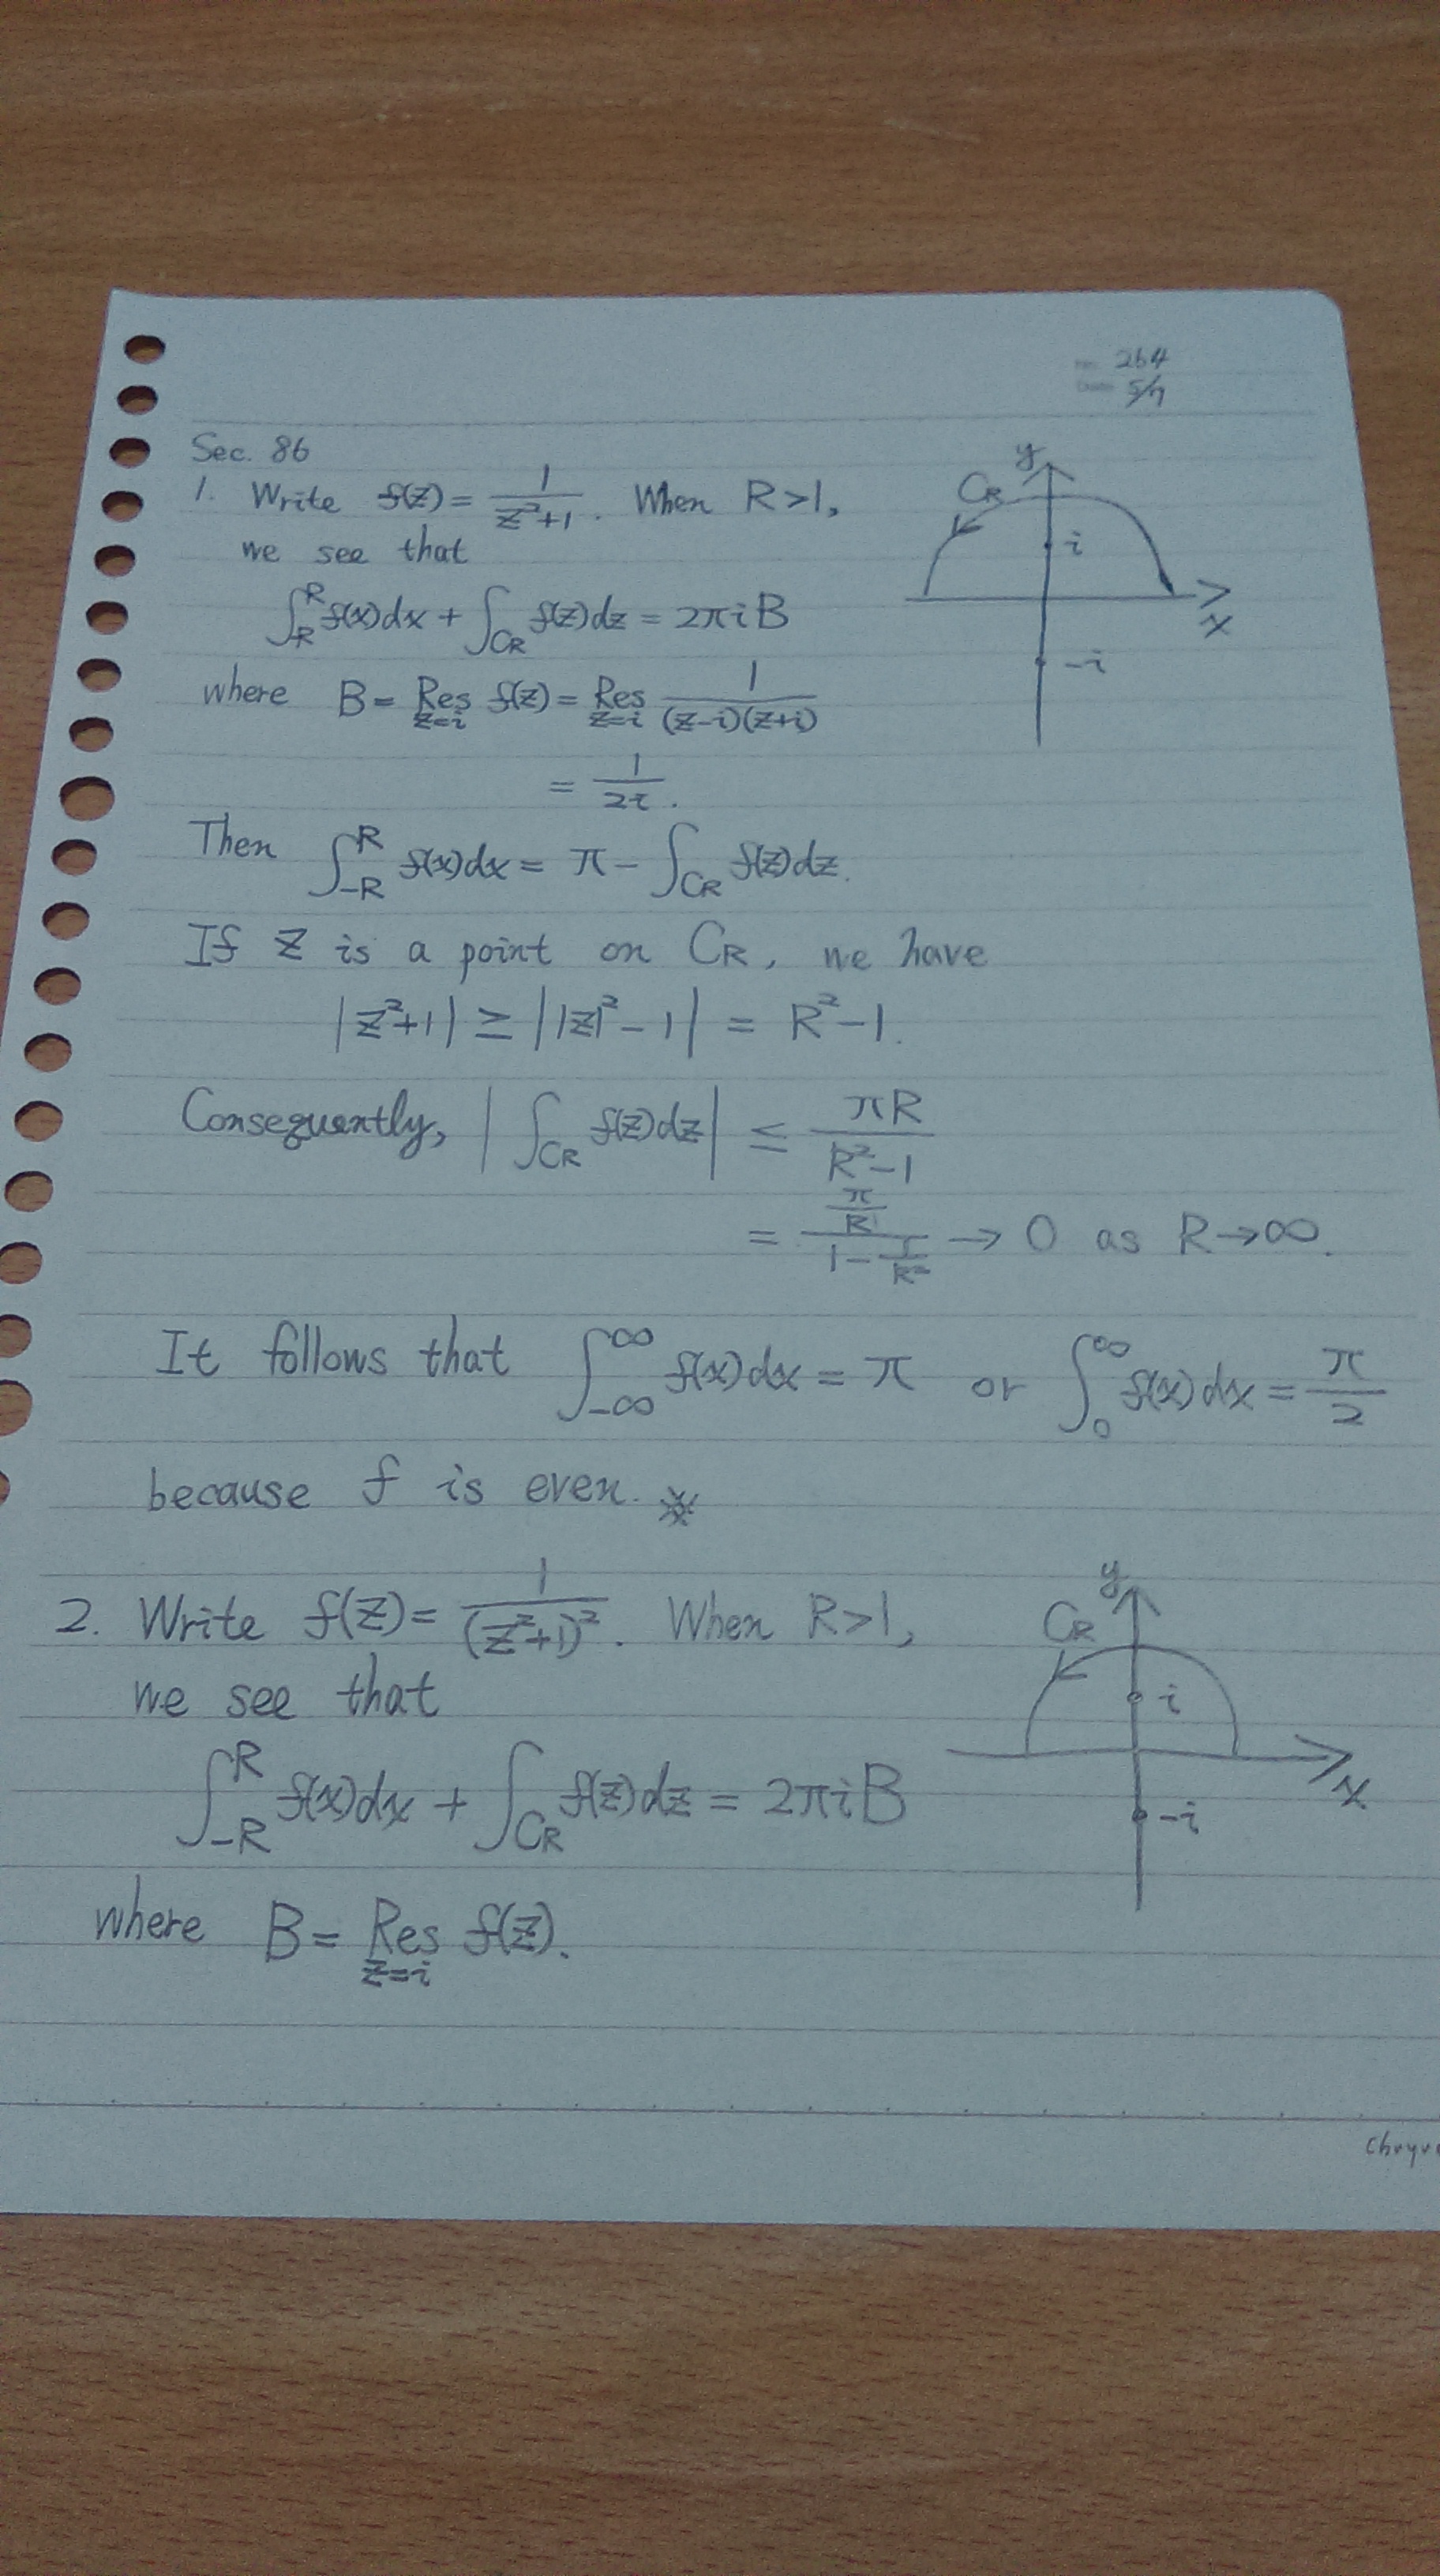 No. 264
Date 5/7
Sec. 86
1. Write f(z) = 1/(z²+1). When R>1,
we see that
∫_R^R f(x)dx + ∫_{C_R} f(z)dz = 2πiB
where B = Res_{z=i} f(z) = Res_{z=i} 1/((z-i)(z+i))
= 1/(2i).
Then ∫_{-R}^{R} f(x)dx = π - ∫_{C_R} f(z)dz.
If z is a point on C_R, we have
|z²+1| ≥ ||z|²-1| = R²-1.
Consequently, |∫_{C_R} f(z)dz| ≤ πR/(R²-1)
= (π/R)/(1-1/R²) → 0 as R→∞.
It follows that ∫_{-∞}^{∞} f(x)dx = π or ∫_0^∞ f(x)dx = π/2
because f is even. ※
y
C_R
i
x
-i
2. Write f(z) = 1/(z²+1)². When R>1,
we see that
∫_{-R}^{R} f(x)dx + ∫_{C_R} f(z)dz = 2πiB
where B = Res_{z=i} f(z).
y
C_R
i
x
-i